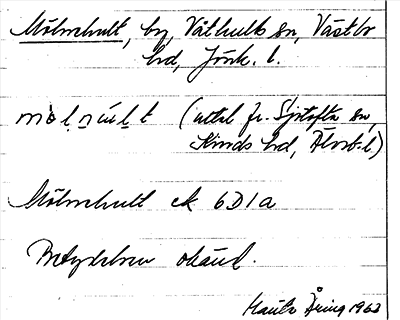 Mölnehult, by, Våthults sn, Västbo
hd, Jönk. l.
(uttal fr. Sjötofta sn,
Kinds hd, Älvsb. l)
Mölnehult ek 6D1a
Betydelsen okänd.
Åring 1963